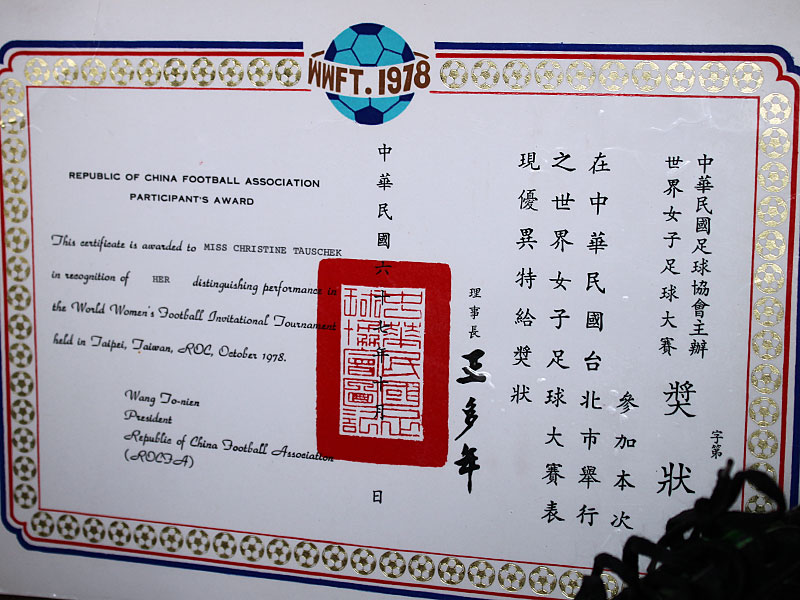 WWFT. 1978
REPUBLIC OF CHINA FOOTBALL ASSOCIATION
PARTICIPANT'S AWARD
This certificate is awarded to MISS CHRISTINE TAUSCHEK
in recognition of HER distinguishing performance in
the World Women's Football Invitational Tournament
held in Taipei, Taiwan, ROC, October 1978.
Wang To-nien
President
Republic of China Football Association
(ROCFA)
中華民國足球協會主辦
世界女子足球大賽
獎狀
字第
參加本次
在中華民國台北市舉行
之世界女子足球大賽表
現優異特給獎狀
理事長 王多年
中華民國六十七年十月 日
中華民國足
球協會圖記